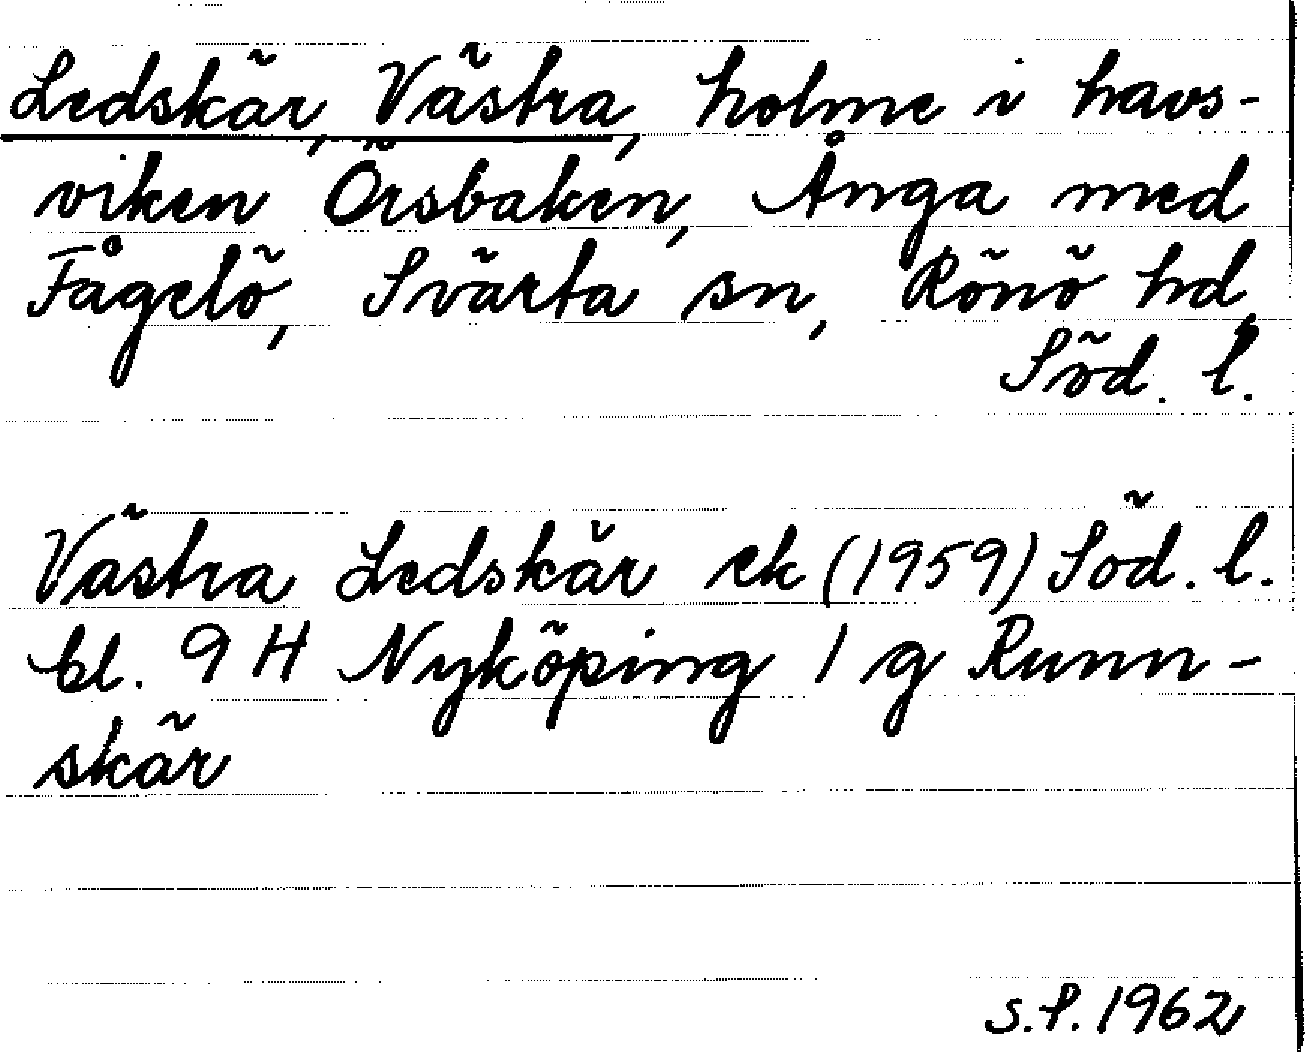 Ledskär, Västra, holme i havs-
viken Örsbaken, Ånga med
Fågelö, Svärta sn, Rönö hd
Söd. l.
Västra Ledskär ek (1959) Söd. l.
bl. 9 H Nyköping 1 g Runn-
skär
s.l. 1962